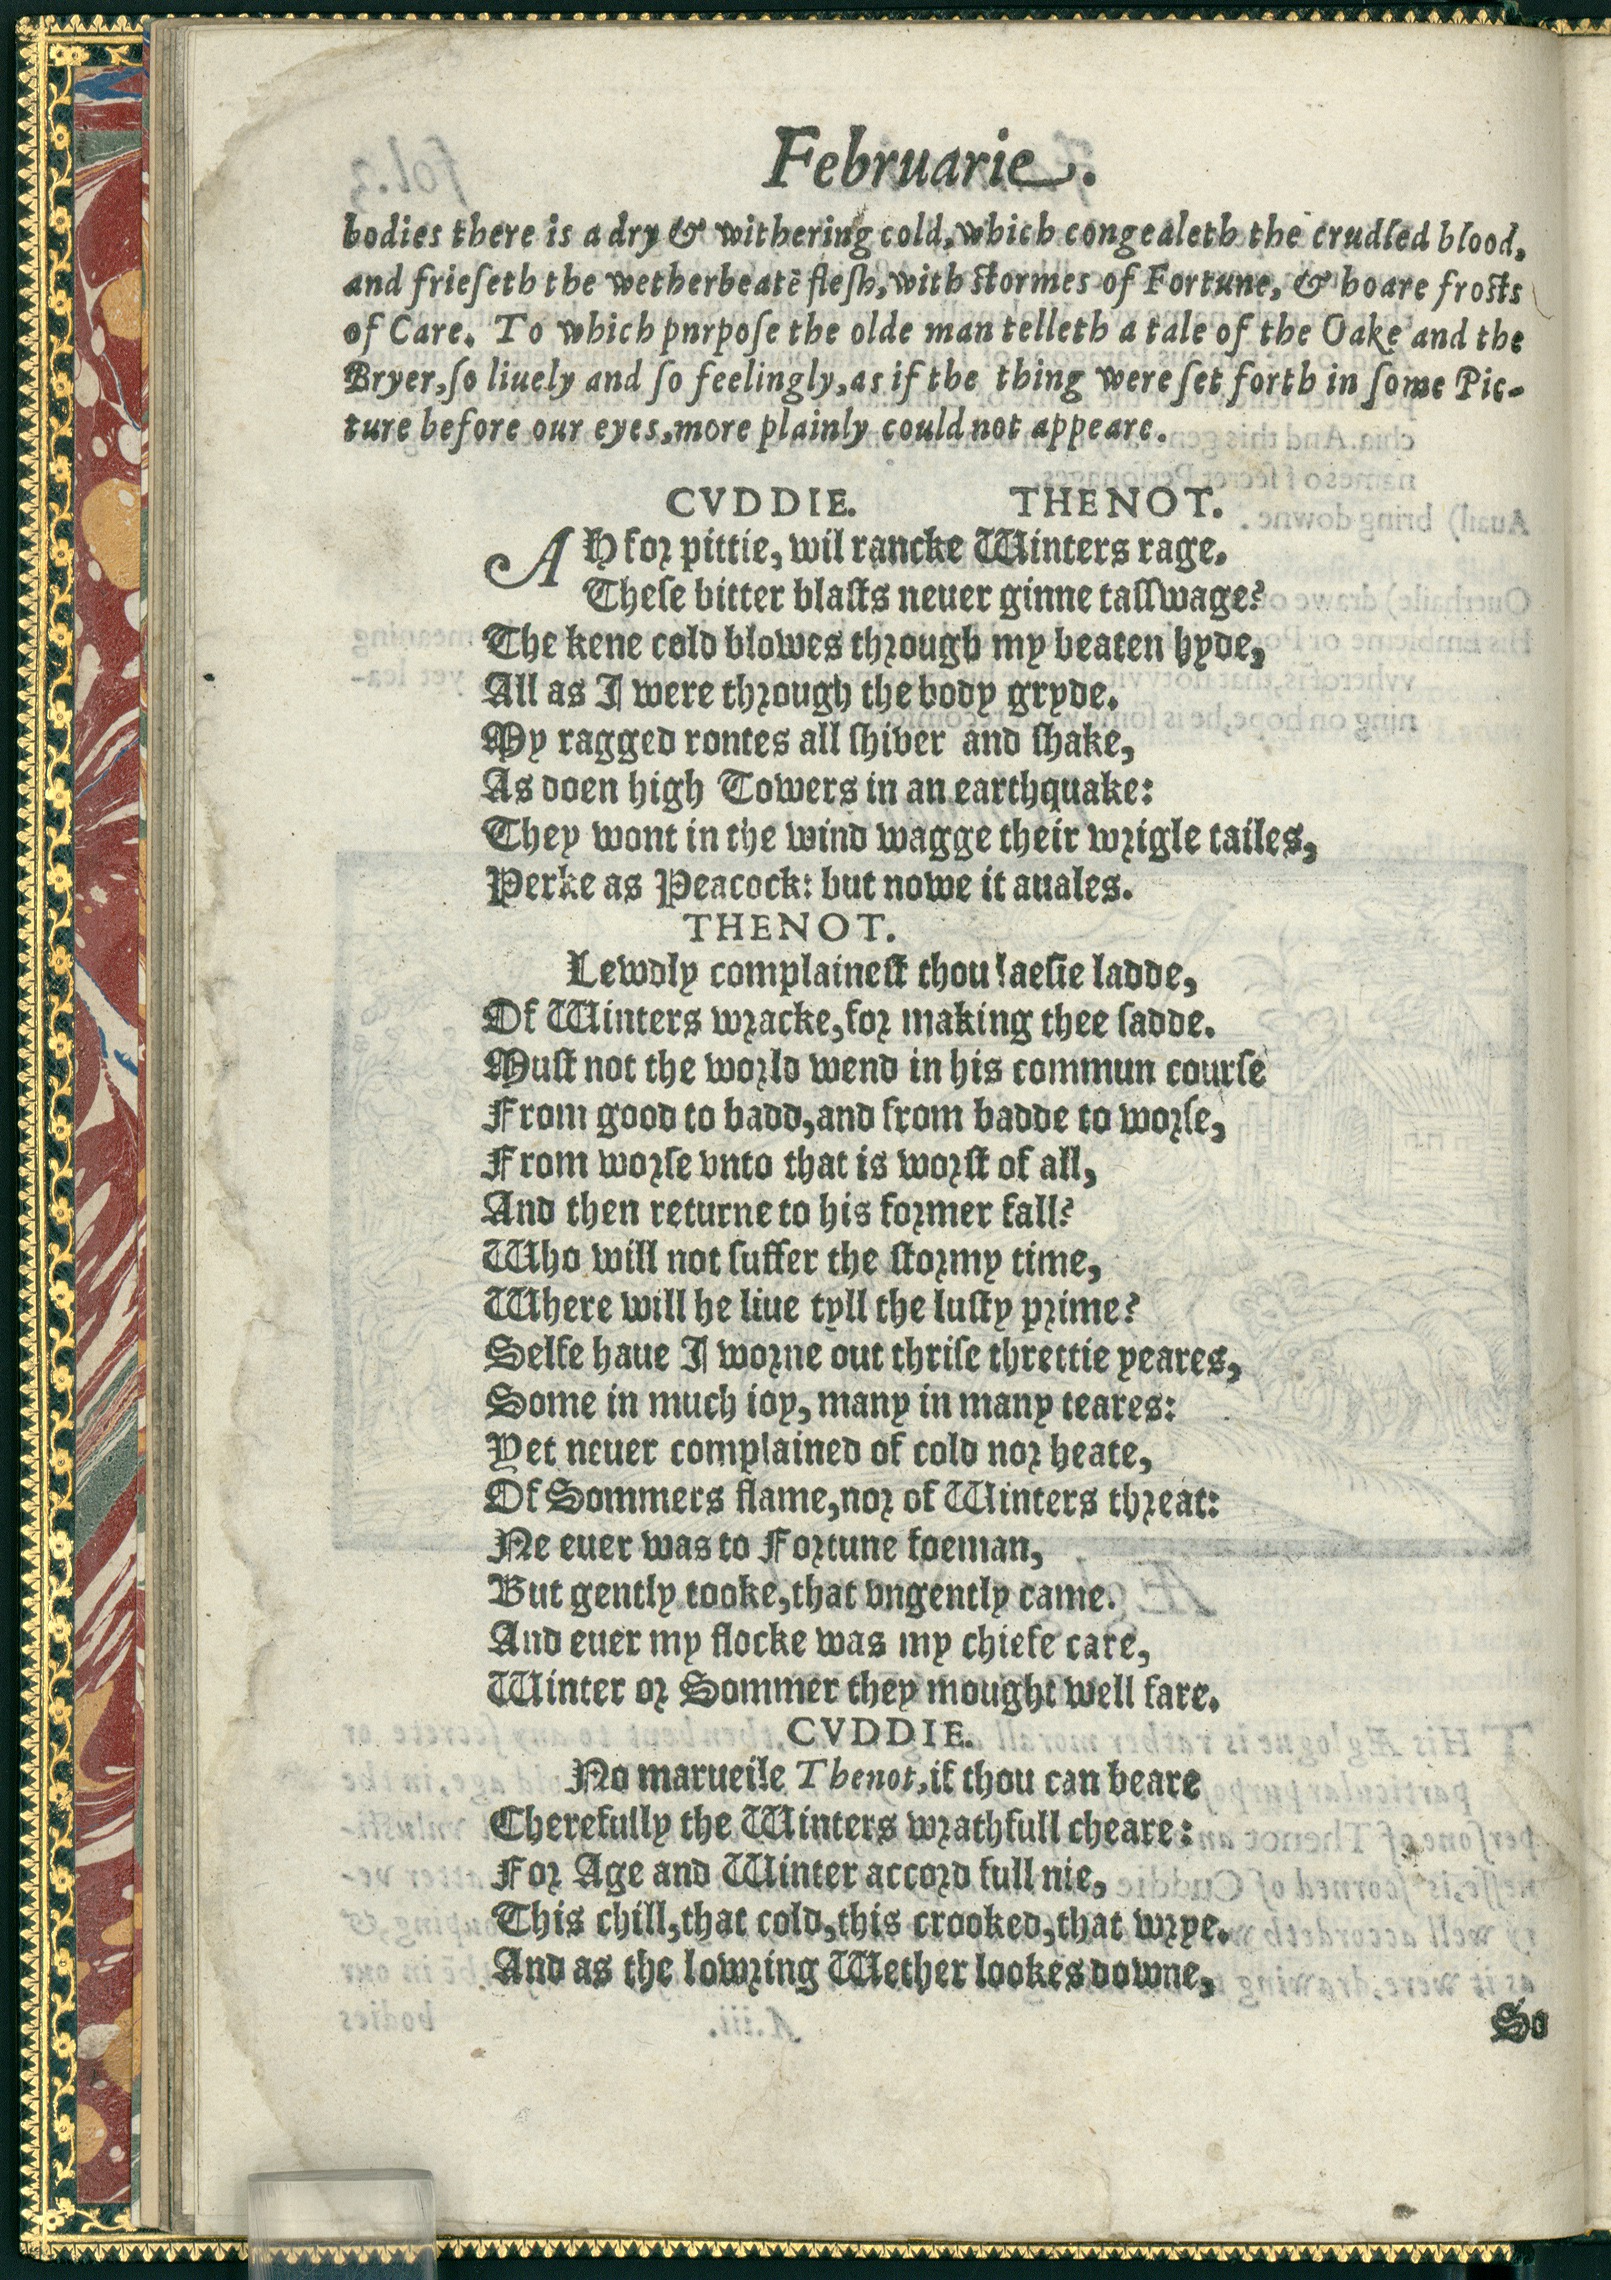 Februarie.
bodies there is a dry & withering cold, which congealeth the crudled blood,
and frieſeth the wetherbeatē fleſh, with ſtormes of Fortune, & hoare froſts
of Care. To which pnrpoſe the olde man telleth a tale of the Oake and the
Bryer, ſo liuely and ſo feelingly, as if the thing were ſet forth in ſome Pic-
ture before our eyes, more plainly could not appeare.
CVDDIE. THENOT.
AH for pittie, wil rancke Winters rage.
Theſe bitter blaſts neuer ginne taſſwage?
The kene cold blowes through my beaten hyde,
All as I were through the body gryde.
My ragged rontes all ſhiver and ſhake,
As doen high Towers in an earthquake:
They wont in the wind wagge their wrigle tailes,
Perke as Peacock: but nowe it auales.
THENOT.
Lewdly complaineſt thou laeſie ladde,
Of Winters wracke, for making thee ſadde.
Muſt not the world wend in his commun courſe
From good to badd, and from badde to worſe,
From worſe vnto that is worſt of all,
And then returne to his former fall?
Who will not ſuffer the ſtormy time,
Where will he liue tyll the luſty prime?
Selfe haue I worne out thriſe threttie yeares,
Some in much ioy, many in many teares:
Yet neuer complained of cold nor heate,
Of Sommers flame, nor of Winters threat:
Ne euer was to Fortune foeman,
But gently tooke, that vngently came.
And euer my flocke was my chiefe care,
Winter or Sommer they mought well fare.
CVDDIE.
No marueile Thenot, if thou can beare
Cherefully the Winters wrathfull cheare:
For Age and Winter accord full nie,
This chill, that cold, this crooked, that wrye.
And as the lowring Wether lookes downe,
So